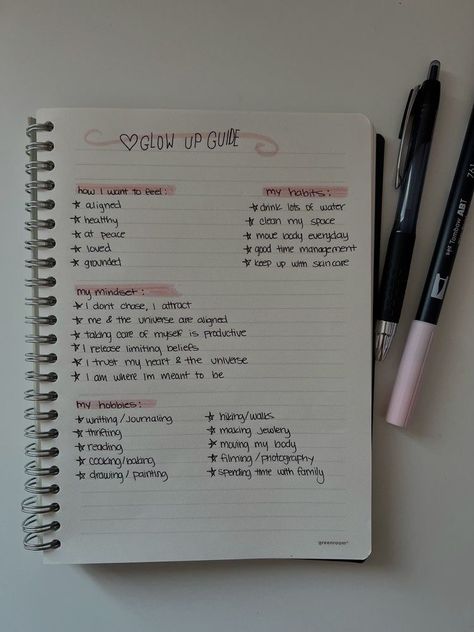 ♡GLOW UP GUIDE
how I want to feel:
☆ aligned
☆ healthy
☆ at peace
☆ loved
☆ grounded
my habits:
☆ drink lots of water
☆ clean my space
☆ move body everyday
☆ good time management
☆ keep up with skincare
my mindset:
☆ I dont chase, I attract
☆ me & the universe are aligned
☆ taking care of myself is productive
☆ I release limiting beliefs
☆ I trust my heart & the universe
☆ I am where Im meant to be
my hobbies:
☆ writting/journaling
☆ thrifting
☆ reading
☆ cooking/baking
☆ drawing/painting
☆ hiking/walks
☆ making jewlery
☆ moving my body
☆ filming/photography
☆ spending time with family
greenroom
Tombow ABT
761